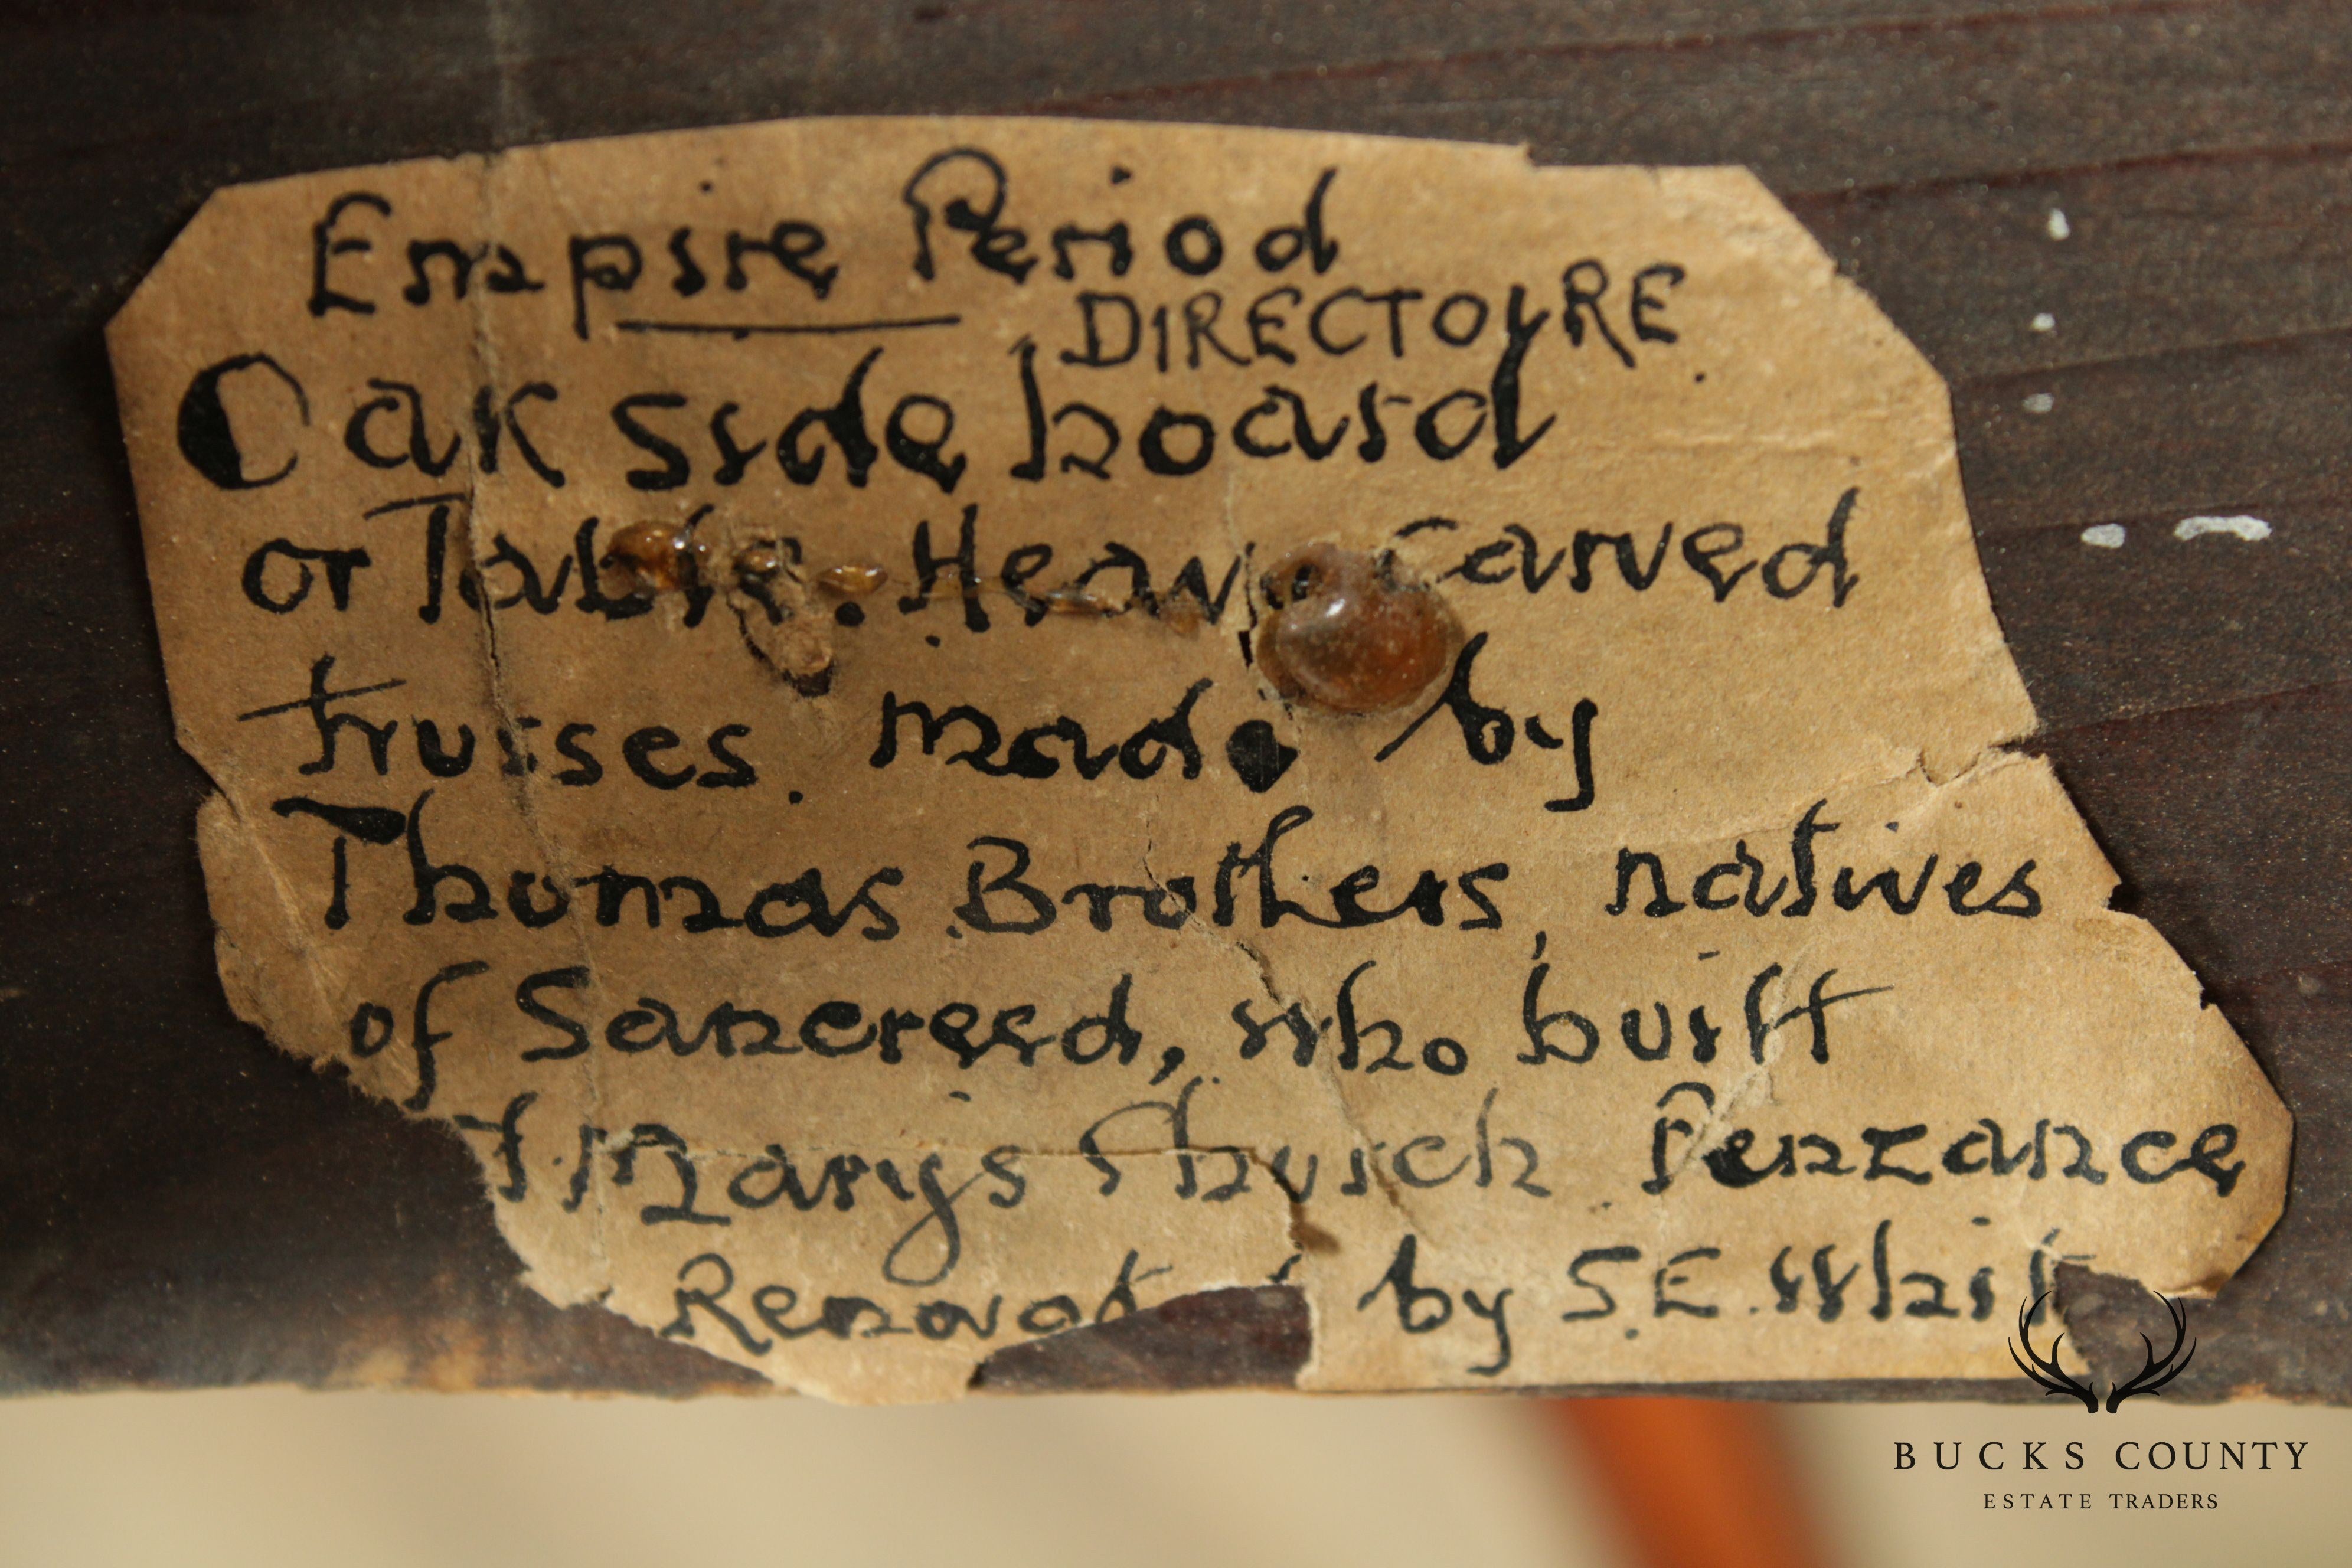 Empire Period
DIRECTOIRE.
Oak sideboard
or Table. Heavy carved
trusses. made by
Thomas Brothers, natives
of Sancreed, who built
St. Mary's Church Penzance
by S.E.
BUCKS COUNTY
ESTATE TRADERS